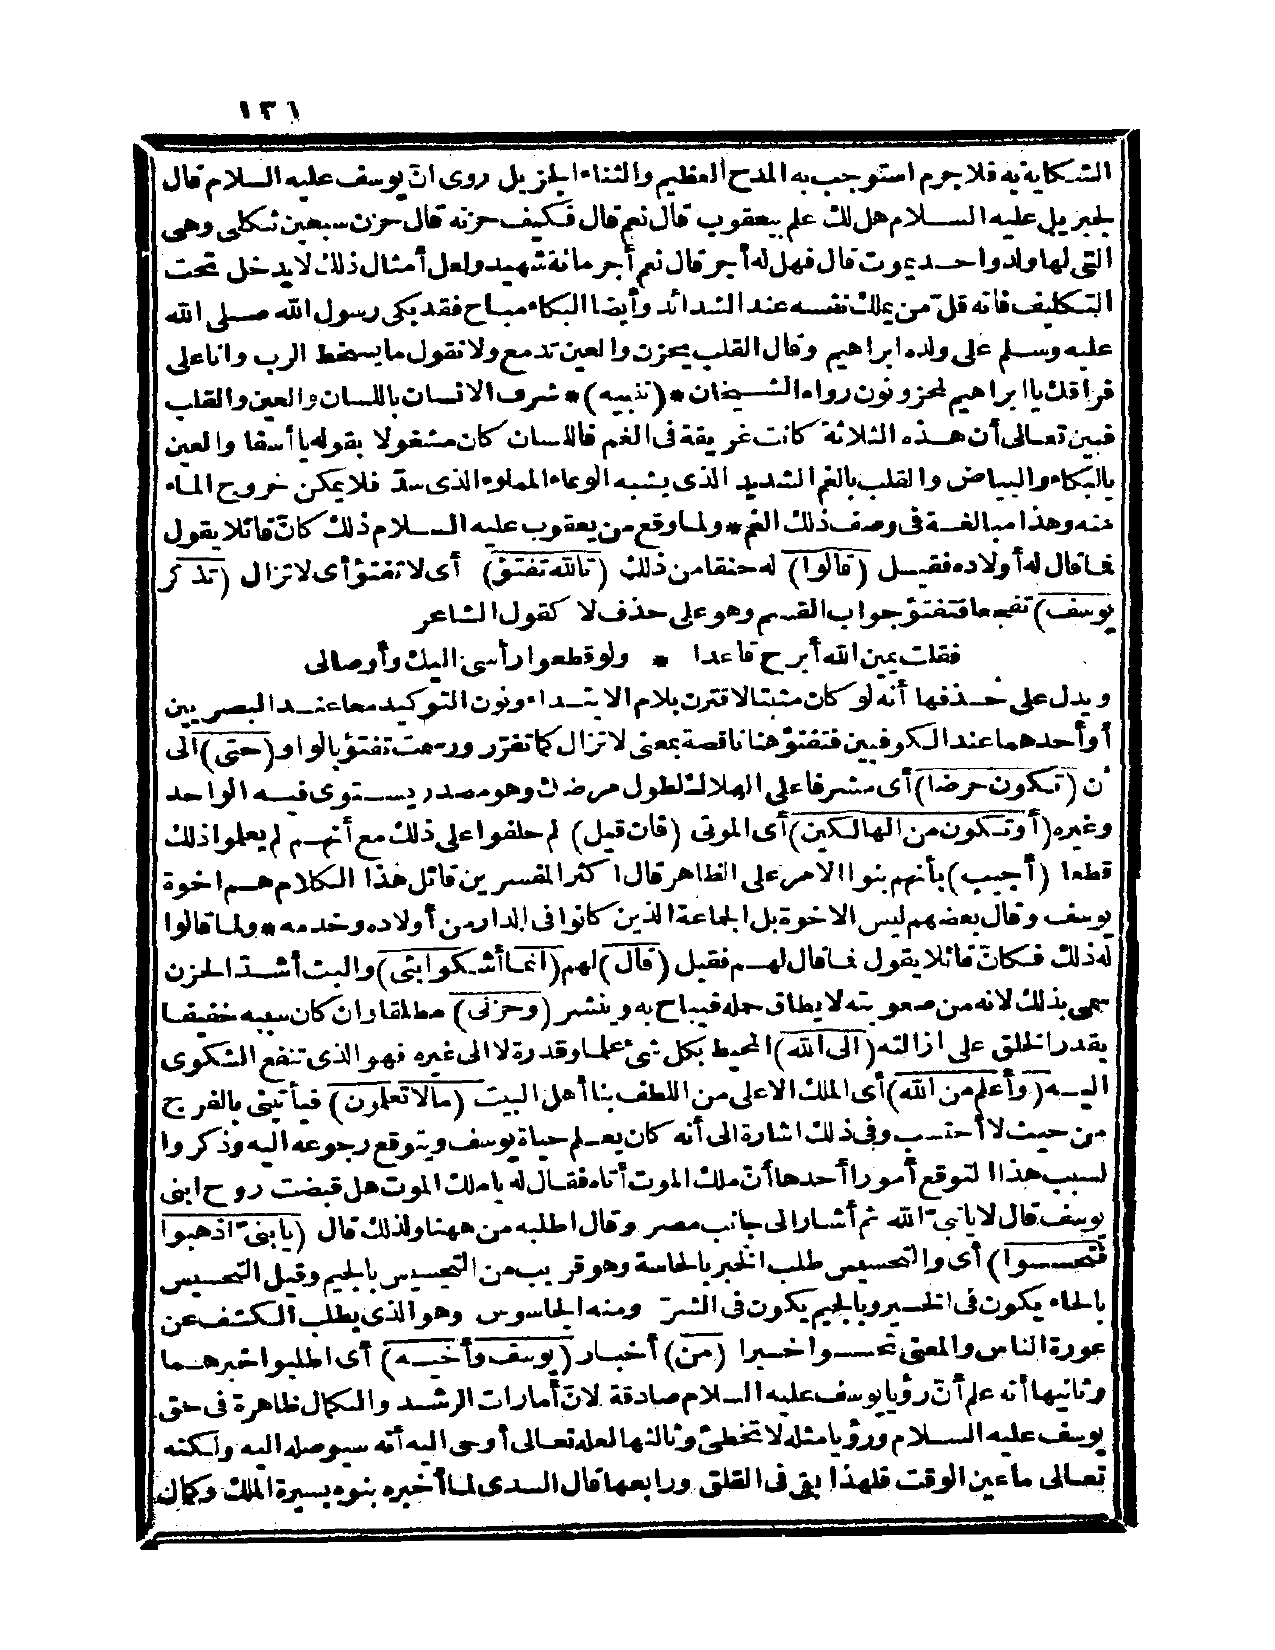 ١٣١
الشكاية به فلا جرم استوجب به المدح العظيم والثناء الجزيل روى انّ يوسف عليه السلام قال
لجبريل عليه السلام هل لك علم بيعقوب قال نعم قال فكيف حزنه قال حزن سبعين ثكلى وهى
التى لها ولد واحد يموت قال فهل له أجر قال نعم أجر مائة شهيد ولعل أمثال ذلك لا يدخل تحت
التكليف فانه قلّ من يملك نفسه عند الشدائد وأيضا البكاء مباح فقد بكى رسول الله صلى الله
عليه وسلم على ولده ابراهيم وقال القلب يحزن والعين تدمع ولا نقول ما يسخط الرب وانا على
فراقك يا ابراهيم لمحزونون رواه الشيخان * (تنبيه) * شرف الانسان باللسان والعين والقلب
فبين تعالى أن هذه الثلاثة كانت غريقة فى الغم فاللسان كان مشغولا بقوله يا أسفا والعين
بالبكاء والبياض والقلب بالغم الشديد الذى يشبه الوعاء المملوء الذى سدّ فلا يمكن خروج الماء
منه وهذا مبالغة فى وصف ذلك الغم * ولما وقع من يعقوب عليه السلام ذلك كانّ قائلا يقول
فما قال له أولاده فقيل (قالوا) له حنقا من ذلك (تالله تفتؤ) أى لا تفتؤ أى لا تزال (تذكر
يوسف) تفجعا فتفتؤ جواب القسم وهو على حذف لا كقول الشاعر
فقلت يمين الله أبرح قاعدا * ولو قطعوا رأسى اليك وأوصالى
ويدل على حذفها أنه لو كان مثبتا لاقترن بلام الابتداء ونون التوكيد معا عند البصريين
أو أحدهما عند الكوفيين فتفتؤ هنا ناقصة بمعنى لا تزال كما تقرّر ورسمت تفتؤ بالواو (حتى) الى
أن (تكون حرضا) أى مشرفا على الهلاك لطول مرضك وهو مصدر يستوى فيه الواحد
وغيره (أو تكون من الهالكين) أى الموتى (فان قيل) لم حلفوا على ذلك مع أنهم لم يعلموا ذلك
قطعا (أجيب) بأنهم بنوا الامر على الظاهر قال اكثر المفسرين قائل هذا الكلام هم اخوة
يوسف وقال بعضهم ليس الاخوة بل الجماعة الذين كانوا فى الدار من أولاده وخدمه * ولما قالوا
له ذلك فكانّ قائلا يقول فما قال لهم فقيل (قال) لهم (انما أشكوا بثى) والبث أشدّ الحزن
سمى بذلك لانه من صعوبته لا يطاق حمله فيباح به وينشر (وحزنى) مطلقا وان كان سببه خفيفا
يقدر الخلق على ازالته (الى الله) المحيط بكل شئ علما وقدرة لا الى غيره فهو الذى تنفع الشكوى
اليه (وأعلم من الله) أى الملك الاعلى من اللطف بنا أهل البيت (ما لا تعلمون) فيأتينى بالفرج
من حيث لا أحتسب وفى ذلك اشارة الى أنه كان يعلم حياة يوسف ويتوقع رجوعه اليه وذكروا
لسبب هذا التوقع أمورا أحدها أنّ ملك الموت أتاه فقال له يا ملك الموت هل قبضت روح ابنى
يوسف قال لا يا نبىّ الله ثم أشار الى جانب مصر وقال اطلبه من ههنا ولذلك قال (يا بنىّ اذهبوا
فتحسسوا) أى والتحسس طلب الخبر بالحاسة وهو قريب من التجسس بالجيم وقيل التحسس
بالحاء يكون فى الخير وبالجيم يكون فى الشرّ ومنه الجاسوس وهو الذى يطلب الكشف عن
عورة الناس والمعنى تحسسوا خبرا (من) أخبار (يوسف وأخيه) أى اطلبوا خبرهما
وثانيها أنه علم أنّ رؤيا يوسف عليه السلام صادقة لانّ أمارات الرشد والكمال ظاهرة فى حق
يوسف عليه السلام ورؤيا مثله لا تخطئ وثالثها لعله تعالى أوحى اليه أنه سيوصله اليه ولكنه
تعالى ما عين الوقت فلهذا بقى فى القلق ورابعها قال السدى لما أخبره بنوه بسيرة الملك وكمال